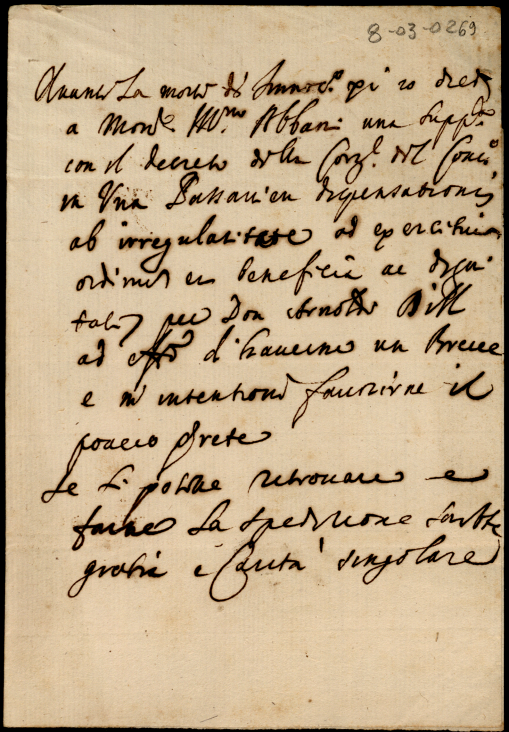 8-03-0269
Avanti la morte di Innoc.º xi io diedi
a Mons.e Ill.mo Abbati una supp.ca
con il decreto della Cong.e del Conc.º
in Una Passavien dispensationis
ab irregularitate ad exercitium
ordinis et beneficia ac digni
tates per Don Arnoldo Bill
ad eff.o d'haverne un Breve
e m'intentionò favorirne il
povero Prete
Se si potesse ritrovare e
farne la speditione sarebbe
gratia e Carità singolare